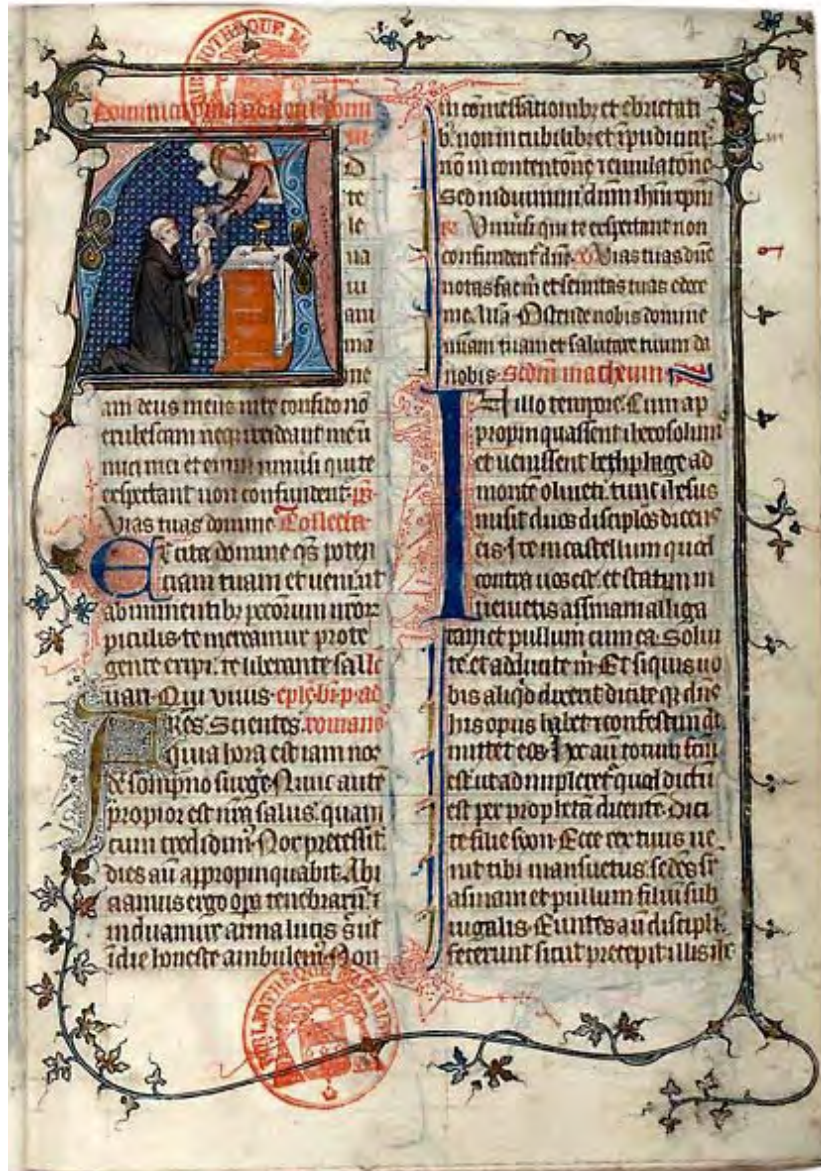 D
te
le
ua
ui
am
ma
me
am deus meus in te confido nõ
erubescam neqȝ irrideant me ĩ
mici mei et enim uniũsi qui te
exspectant non confundent
Vias tuas domine Collecta
Excita domine qs poten
ciam tuam et ueni ut
ab iminentibȝ pccorum nror
piculis te mereamur prote
gente eripi te liberante sal
uari Qui viuis ad
romanos
Fres Scientes
quia hora est iam nos
de sompno surge Nunc autē
propior est nra salus quam
cum credidimȝ Nox precessit
dies aũ appropinquabit Abi
ciamus ergo opa tenebrarũ ⁊
induamur arma lucis sic̃ ut
ĩ die honeste ambulemȝ Non
in comessationibȝ et ebrietati
bȝ non in cubilibȝ et ĩpudiciciis
nõ in contentone ⁊ emulatone
Sed induimini dnm ihm xpm
Vniũsi qui te exspectant non
confundent dñe Vias tuas dñe
notas fac m̃ et semitas tuas edoce
me Alla Ostende nobis domine
miam tuam et salutare tuum da
nobis Sedm matheum
In illo tempore Cum ap
propinquassent iherosolimis
et uenissent bethphage ad
montē oliueti tunc ihesus
misit duos disciplos dicens
eis Ite in castellum quod
contra uos est et statim in
uenietis assinam alliga
tam et pullum cum ea Solui
te et adducite m̃ Et si quis uo
bis aliqd dixerit dicite qȝ dñs
his opus habet ⁊ confestim di
mittet eos Hoc aũ totum fcm
est ut adimpleret quod dictũ
est per prophetã dicentē Dici
te filie syon Ecce rex tuus ue
nit tibi mansuetus sedes sr
asinam et pullum filiũ sub
iugalis Euntes aũ discipli
fecerunt sicut precepit illis ihs